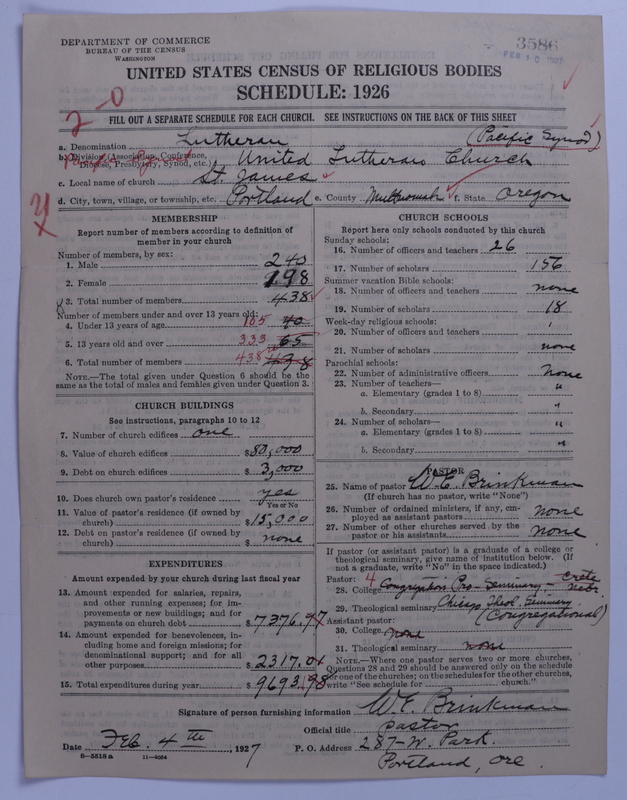 DEPARTMENT OF COMMERCE
BUREAU OF THE CENSUS
WASHINGTON
3586
FEB 10 1927
UNITED STATES CENSUS OF RELIGIOUS BODIES
SCHEDULE: 1926
2-0
FILL OUT A SEPARATE SCHEDULE FOR EACH CHURCH. SEE INSTRUCTIONS ON THE BACK OF THIS SHEET
a. Denomination Lutheran (Pacific Synod)
b. Division (Association, Conference, Diocese, Presbytery, Synod, etc.) United Lutheran Church
c. Local name of church St. James
d. City, town, village, or township, etc. Portland e. County Multnomah f. State Oregon
MEMBERSHIP
Report number of members according to definition of
member in your church
Number of members, by sex:
1. Male 240
2. Female 198
3. Total number of members 438
Number of members under and over 13 years old:
4. Under 13 years of age 105 40
5. 13 years old and over 333 65
6. Total number of members 438
NOTE.—The total given under Question 6 should be the
same as the total of males and females given under Question 3.
CHURCH BUILDINGS
See instructions, paragraphs 10 to 12
7. Number of church edifices one
8. Value of church edifices $80,000
9. Debt on church edifices $3,000
10. Does church own pastor's residence yes
Yes or No
11. Value of pastor's residence (if owned by
church) $15,000
12. Debt on pastor's residence (if owned by
church) $ none
EXPENDITURES
Amount expended by your church during last fiscal year
13. Amount expended for salaries, repairs,
and other running expenses; for im-
provements or new buildings; and for
payments on church debt $7376.97
14. Amount expended for benevolences, in-
cluding home and foreign missions; for
denominational support; and for all
other purposes $2317.01
15. Total expenditures during year $9693.98
CHURCH SCHOOLS
Report here only schools conducted by this church
Sunday schools:
16. Number of officers and teachers 26
17. Number of scholars 156
Summer vacation Bible schools:
18. Number of officers and teachers none
19. Number of scholars 18
Week-day religious schools:
20. Number of officers and teachers
21. Number of scholars none
Parochial schools:
22. Number of administrative officers none
23. Number of teachers—
a. Elementary (grades 1 to 8) "
b. Secondary "
24. Number of scholars—
a. Elementary (grades 1 to 8) "
b. Secondary "
PASTOR
25. Name of pastor W.E. Brinkman
(If church has no pastor, write "None")
26. Number of ordained ministers, if any, em-
ployed as assistant pastors none
27. Number of other churches served by the
pastor or his assistants none
If pastor (or assistant pastor) is a graduate of a college or
theological seminary, give name of institution below. (If
not a graduate, write "No" in the space indicated.)
Pastor: 4
28. College Congregation Pro-Seminary - Crete Nebr.
29. Theological seminary Chicago Theol. Seminary
(Congregational)
Assistant pastor:
30. College none
31. Theological seminary none
NOTE.—Where one pastor serves two or more churches,
Questions 28 and 29 should be answered only on the schedule
for one of the churches; on the schedules for the other churches,
write "See schedule for church."
Signature of person furnishing information W.E. Brinkman
Official title pastor
Date Feb. 4th, 1927 P. O. Address 287-W. Park.
8—5518a 11—9064 Portland, Ore.